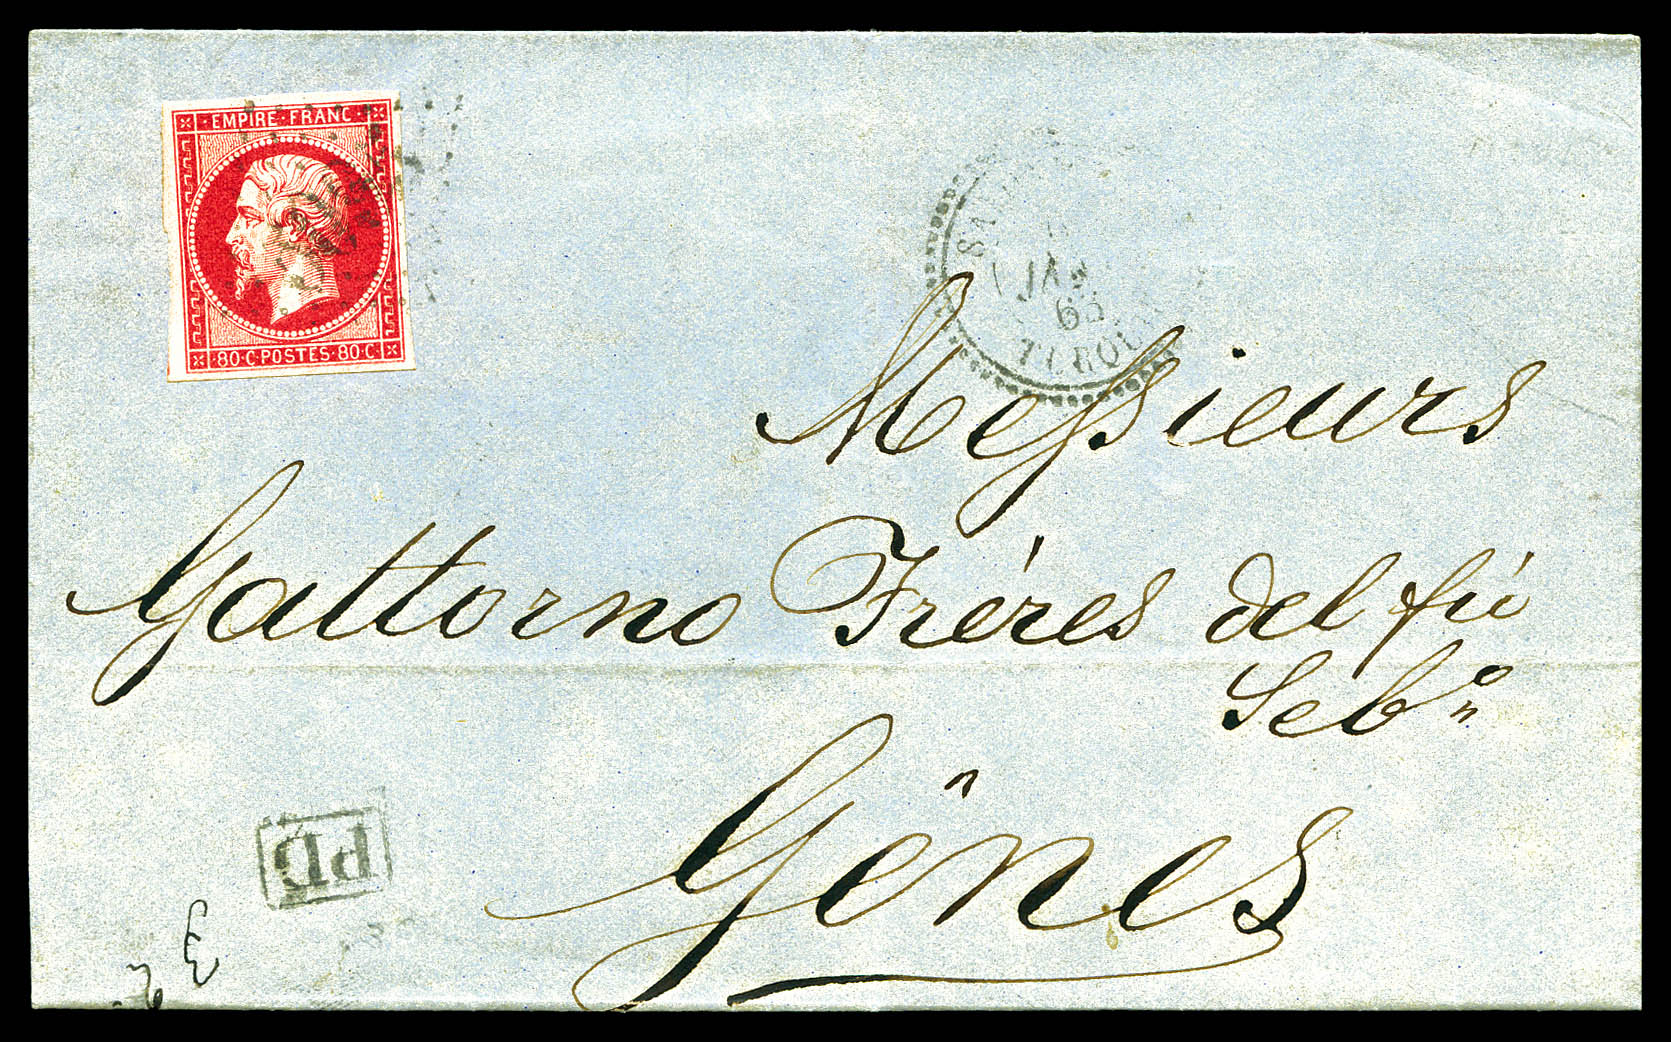 EMPIRE · FRANC ·
80 · C · POSTES · 80 · C
JAN
65
TURQUIE
Messieurs
Gattorno Fréres del fú
Seb.º
Gênes
PD
3